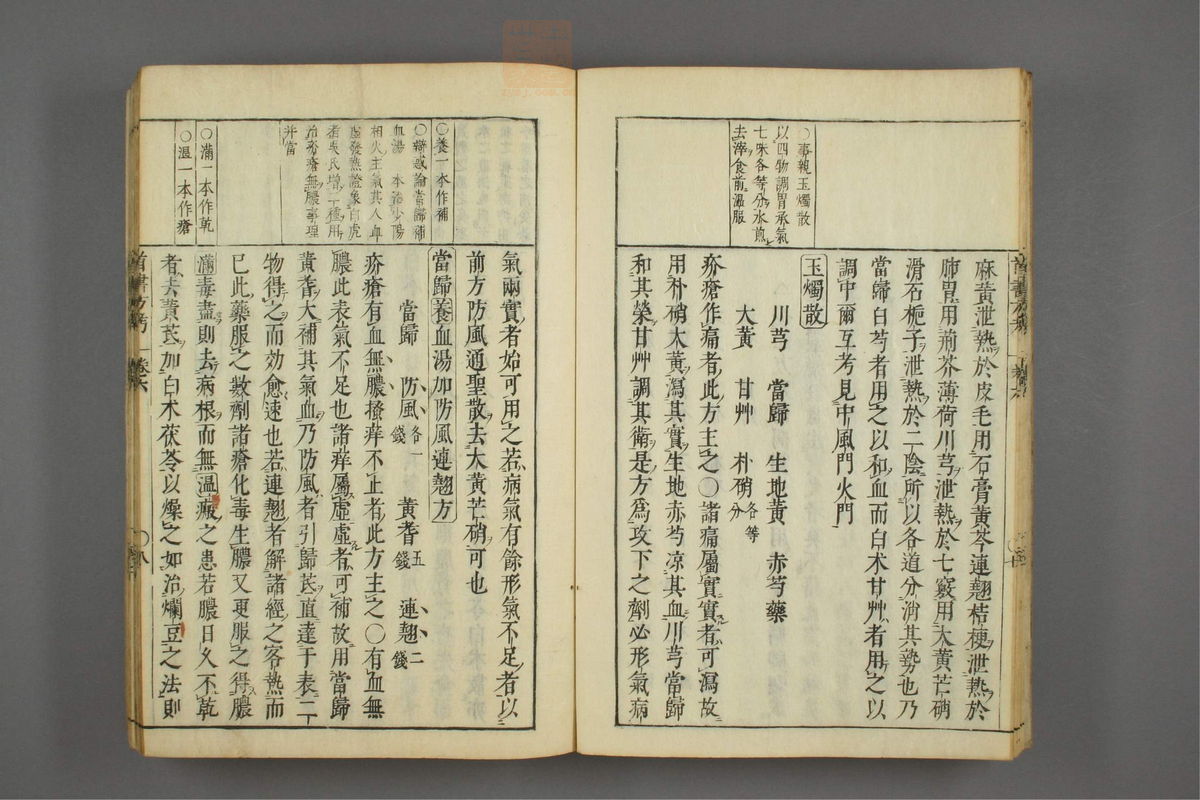 ○事親玉燭散
以四物調胃承氣
七味各等分水煎
去滓食前溫服
麻黃泄熱於皮毛用石膏黃芩連翹桔梗泄熱於
肺胃用荊芥薄荷川芎泄熱於七竅用大黃芒硝
滑石梔子泄熱於二陰所以各道分消其勢也乃
當歸白芍者用之以和血而白术甘艸者用之以
調中爾互考見中風門火門
玉燭散
川芎 當歸 生地黃 赤芍藥
大黃 甘艸 朴硝各等分
疥瘡作痛者此方主之○諸痛屬實實者可瀉故
用朴硝大黃瀉其實生地赤芍涼其血川芎當歸
和其榮甘艸調其衛是方爲攻下之劑必形氣病
○養一本作補
○辯惑論當歸補
血湯 本治少陽
相火主氣其人血
虛發熱證象白虎
者吳氏增二種用
治疥瘡無膿事理
并當
○滿一本作乾
○溫一本作瘡
氣兩實者始可用之若病氣有餘形氣不足者以
前方防風通聖散去大黃芒硝可也
當歸養血湯加防風連翹方
當歸 防風各一錢 黃耆五錢 連翹二錢
疥瘡有血無膿搔痒不止者此方主之○有血無
膿此表氣不足也諸痒屬虛虛者可補故用當歸
黃耆大補其氣血乃防風者引歸芪直達于表二
物得之而効愈速也若連翹者解諸經之客熱而
已此藥服之數劑諸瘡化毒生膿又更服之得膿
滿毒盡則去病根而無溫瘢之患若膿日久不乾
者去黃芪加白术茯苓以燥之如治爛豆之法則